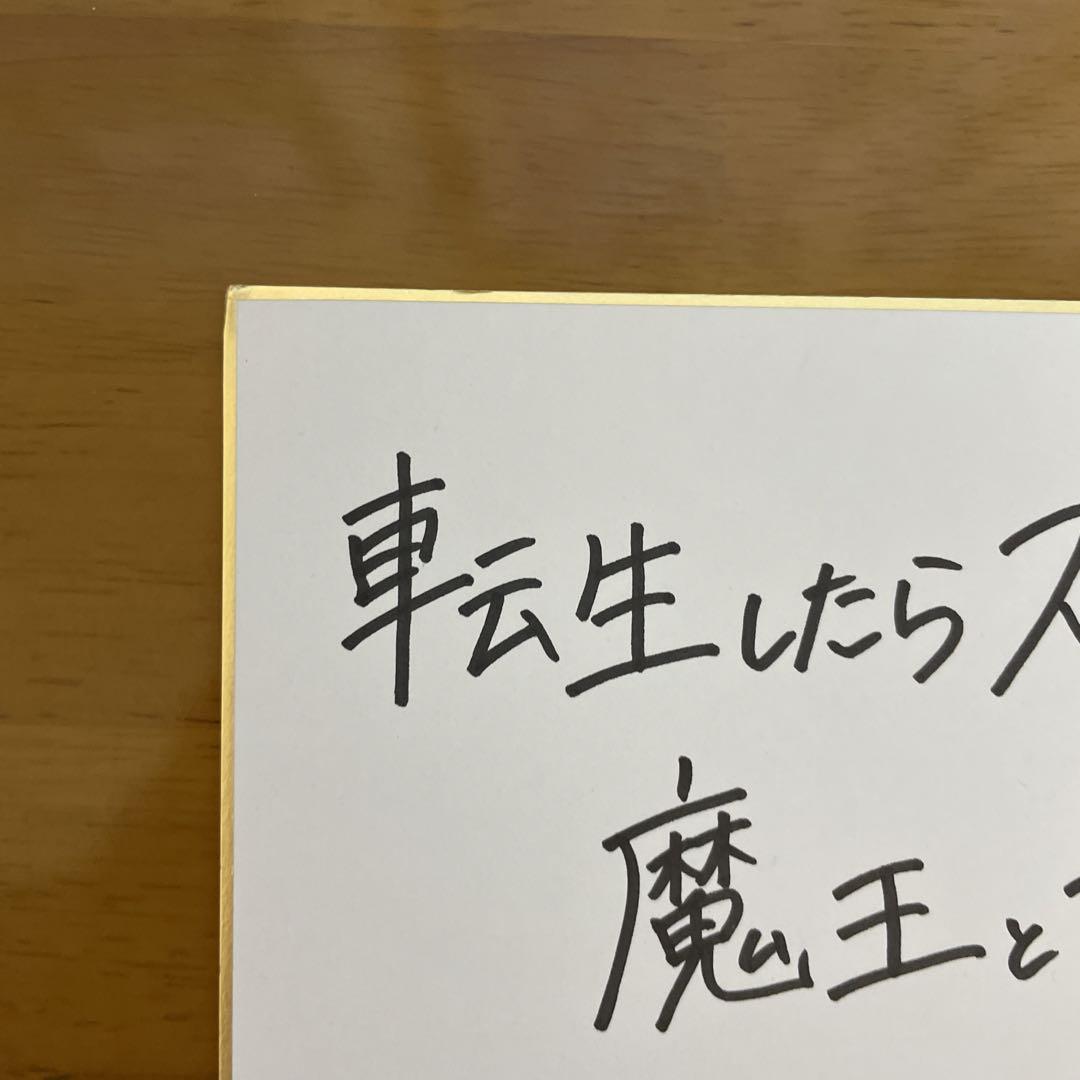 転生したらス
魔王と